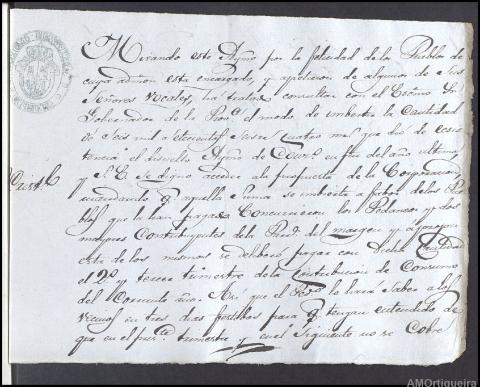 Mirando este Aynº por la felicidad de los Pueblos de
cuya admon está encargado, y apeticion de algunos de sus
Señores Vocales, ha tratado consultar con el Ecsmo Sr
Gobernador de la Provª el modo de imbertir la Cantidad
de seis mil cuatro mrs que dio de ecsis
tencia el disuelto Aynº de en fin del año ultimo,
y S.E. se dignó acceder ala propuesta de la Corporacion,
mandando q aquella suma se imbierta a fabor de los Pue
blos que la han pagado. Concurrieron los Pedaneos y dos
mayores Contribuyentes de la Parrª del margen y a propuesta
esta de los mismos se deliberó pagar con dicha Cantidad
el 2º y tercer trimestre de la Contribucion de Consumo
del Corriente año. Asi que el Pedº lo hara saber a los
Vecinos en tres dias festibos para q tengan entendido de
que en el trimestre y en el siguiente no se Cobra
AMOrtigueira